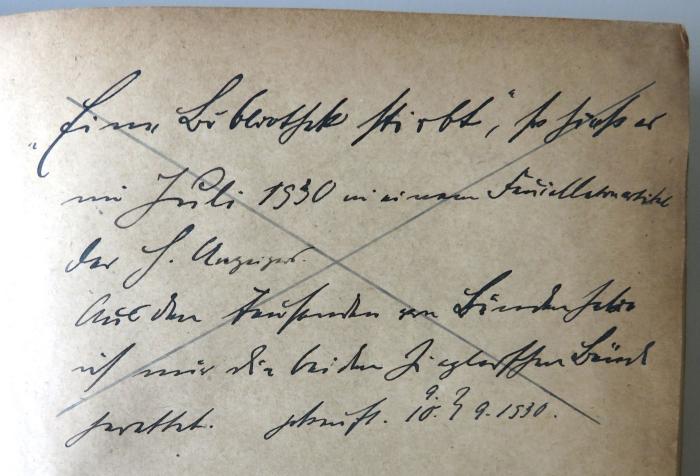 „Eine Bibliothek stirbt“, so hieß es
im Juli 1930 in einem Feuilletonartikel
des H. Anzeiger.
Aus den Tausenden von Bänden habe
ich mir die beiden Zieglerschen Bände
gerettet. gekauft. 9. 10. ? 9. 1930.